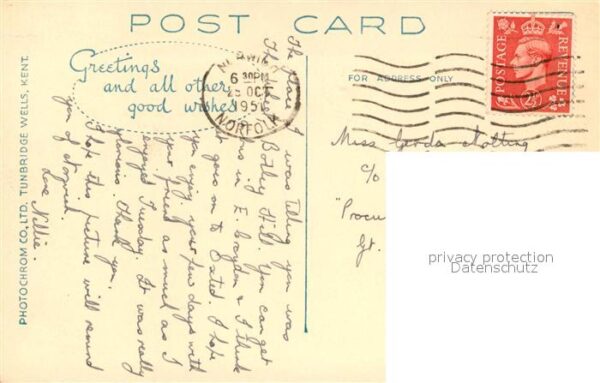 POST CARD
Greetings
and all other
good wishes
FOR ADDRESS ONLY
POSTAGE
REVENUE
6 30PM
25 OCT
1951
NORFOLK
PHOTOCHROM CO., LTD. TUNBRIDGE WELLS, KENT.
The place I was telling you was
Botley Hill. You can get
this in E. Croydon & I think
it goes on to Oxted. I hope
you enjoy your few days with
your friend as much as I
enjoyed Tuesday. It was really
glorious. Thank you.
I hope this picture will remind
you of Norwich.
Love Nellie.
Miss Gerda
c/o
Gt.
privacy protection
Datenschutz